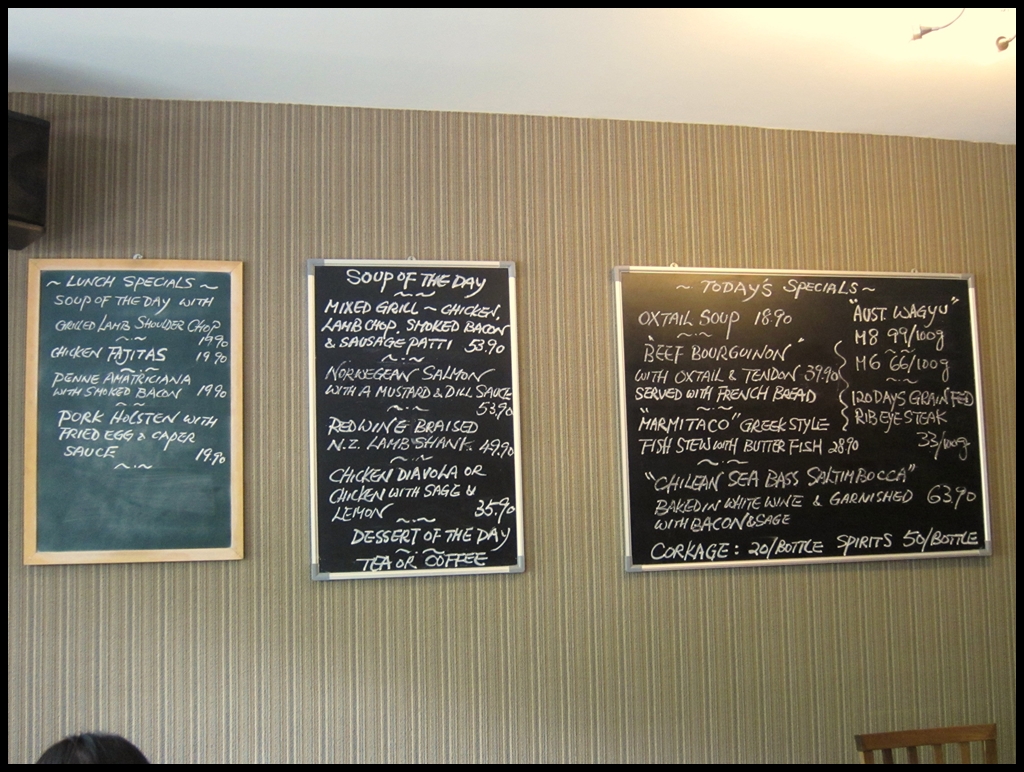 ~ LUNCH SPECIALS ~
SOUP OF THE DAY WITH
GRILLED LAMB SHOULDER CHOP
19.90
CHICKEN FAJITAS 19.90
PENNE AMATRICIANA
WITH SMOKED BACON 19.90
PORK HOLSTEN WITH
FRIED EGG & CAPER
SAUCE 19.90
SOUP OF THE DAY
MIXED GRILL ~ CHICKEN,
LAMB CHOP, SMOKED BACON
& SAUSAGE PATTI 53.90
NORWEGEAN SALMON
WITH A MUSTARD & DILL SAUCE
53.90
REDWINE BRAISED
N.Z. LAMB SHANK 49.90
CHICKEN DIAVOLA OR
CHICKEN WITH SAGE &
LEMON 35.90
DESSERT OF THE DAY
TEA OR COFFEE
~ TODAY'S SPECIALS ~
OXTAIL SOUP 18.90
"BEEF BOURGUINON"
WITH OXTAIL & TENDON 39.90
SERVED WITH FRENCH BREAD
"MARMITACO" GREEK STYLE
FISH STEW WITH BUTTER FISH 28.90
"AUST. WAGYU"
M8 99/100g
M6 66/100g
120 DAYS GRAIN FED
RIB EYE STEAK
33/100g
"CHILEAN SEA BASS SALTIMBOCCA"
BAKED IN WHITE WINE & GARNISHED 63.90
WITH BACON & SAGE
CORKAGE: 20/BOTTLE SPIRITS 50/BOTTLE